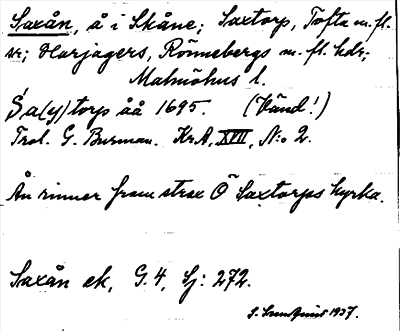 Saxån, å i Skåne; Saxtorp, Tofta m. fl.
sr; Harjagers, Rönnebergs m. fl. hdr;
Malmöhus l.
Sa(y)torp åå 1695. (Vänd!)
Trol. G. Burman. KrA, XVII, N:o 2.
Ån rinner fram strax Ö Saxtorps kyrka.
Saxån ek, G. 4, Sj: 272.
1937.